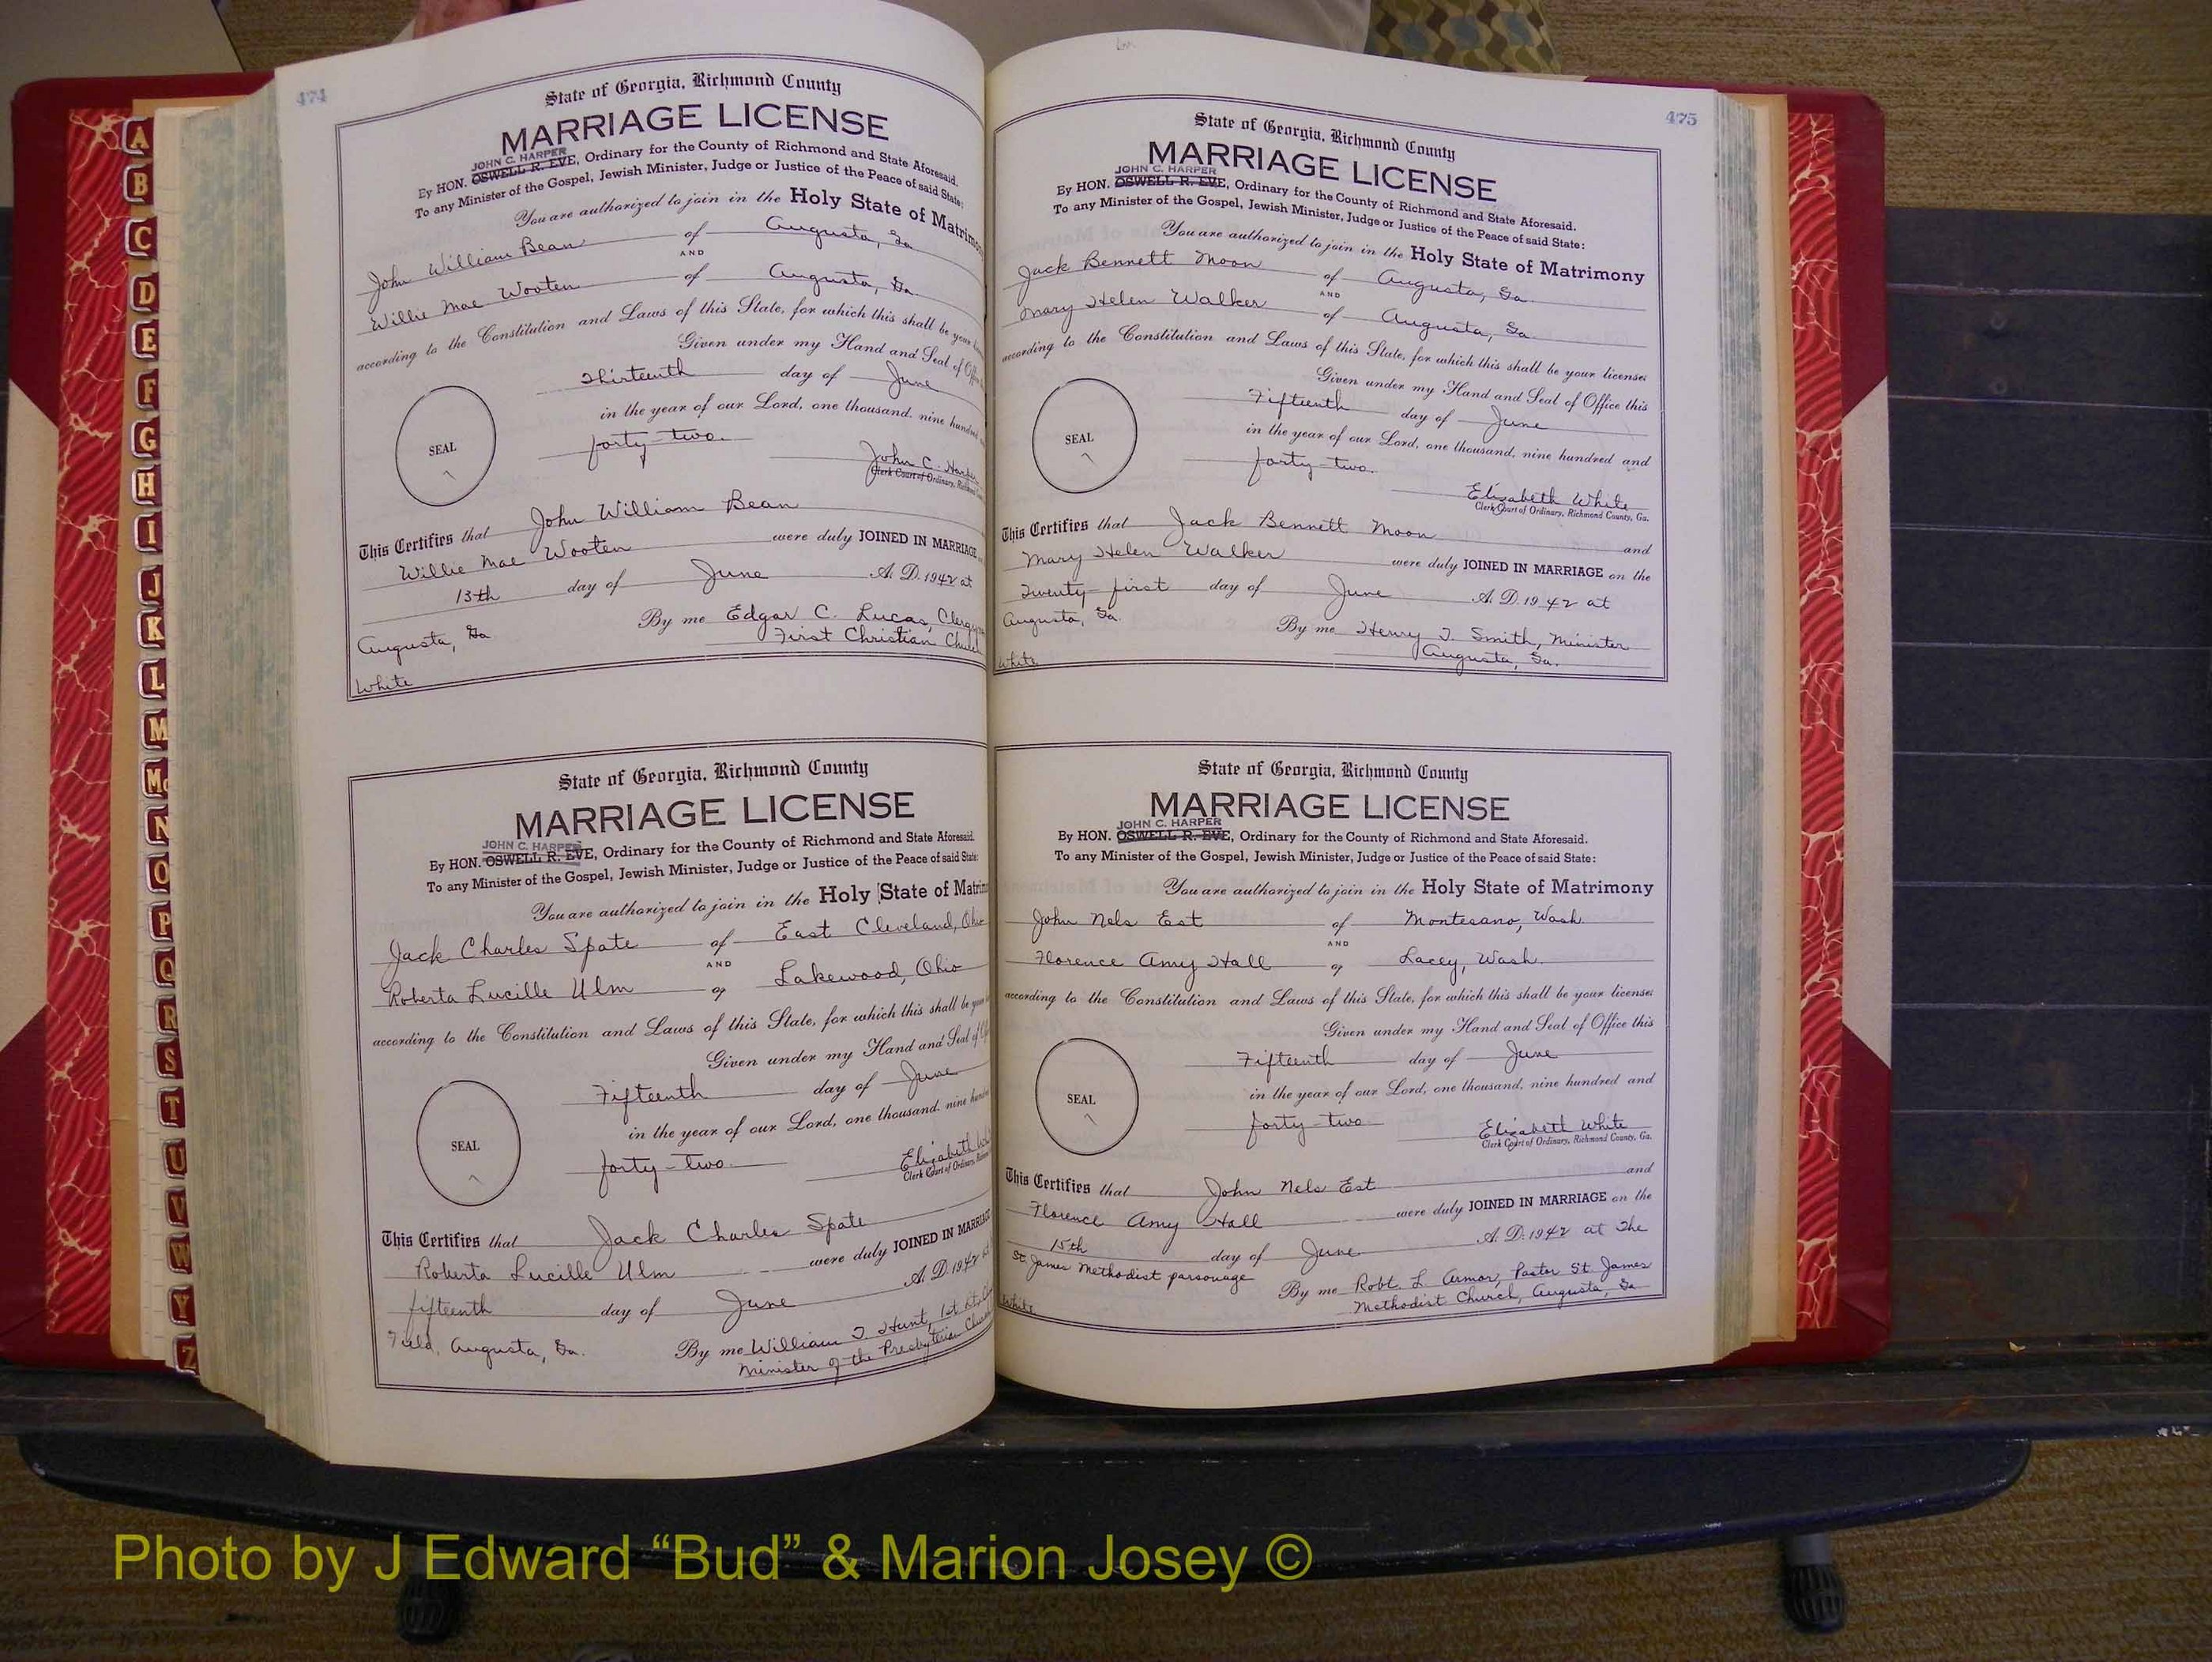 474
State of Georgia, Richmond County
MARRIAGE LICENSE
JOHN C. HARPER
By HON. OSWELL R. EVE, Ordinary for the County of Richmond and State Aforesaid.
To any Minister of the Gospel, Jewish Minister, Judge or Justice of the Peace of said State:
You are authorized to join in the Holy State of Matrimony
John William Bean of Augusta, Ga.
AND
Willie Mae Wooten of Augusta, Ga.
according to the Constitution and Laws of this State, for which this shall be your
Given under my Hand and Seal of Office
Thirteenth day of June
in the year of our Lord, one thousand, nine hundred
forty-two.
SEAL
John C. Harper
Clerk Court of Ordinary, Richmond
This Certifies that John William Bean
Willie Mae Wooten were duly JOINED IN MARRIAGE
13th day of June A. D. 1942 at
Augusta, Ga. By me Edgar C. Lucas, Clergyman
First Christian Church
White
State of Georgia, Richmond County
MARRIAGE LICENSE
JOHN C. HARPER
By HON. OSWELL R. EVE, Ordinary for the County of Richmond and State Aforesaid.
To any Minister of the Gospel, Jewish Minister, Judge or Justice of the Peace of said State:
You are authorized to join in the Holy State of Matrim
Jack Charles Spate of East Cleveland, Ohio
AND
Roberta Lucille Ulm of Lakewood, Ohio
according to the Constitution and Laws of this State, for which this shall be your
Given under my Hand and Seal of
Fifteenth day of June
in the year of our Lord, one thousand, nine hundred
forty-two.
SEAL
Elizabeth
Clerk Court of Ordinary,
This Certifies that Jack Charles Spate
Roberta Lucille Ulm were duly JOINED IN MARRIAGE
fifteenth day of June A. D. 1942
Field, Augusta, Ga. By me William T. Hunt, 1st Lt.
Minister of the Presbyterian Church
475
State of Georgia, Richmond County
MARRIAGE LICENSE
JOHN C. HARPER
By HON. OSWELL R. EVE, Ordinary for the County of Richmond and State Aforesaid.
To any Minister of the Gospel, Jewish Minister, Judge or Justice of the Peace of said State:
You are authorized to join in the Holy State of Matrimony
Jack Bennett Moon of Augusta, Ga.
AND
Mary Helen Walker of Augusta, Ga.
according to the Constitution and Laws of this State, for which this shall be your license:
Given under my Hand and Seal of Office this
Fifteenth day of June
in the year of our Lord, one thousand, nine hundred and
forty-two.
SEAL
Elizabeth White
Clerk Court of Ordinary, Richmond County, Ga.
This Certifies that Jack Bennett Moon and
Mary Helen Walker were duly JOINED IN MARRIAGE on the
Twenty-first day of June A. D. 1942 at
Augusta, Ga. By me Henry J. Smith, Minister
Augusta, Ga.
White
State of Georgia, Richmond County
MARRIAGE LICENSE
JOHN C. HARPER
By HON. OSWELL R. EVE, Ordinary for the County of Richmond and State Aforesaid.
To any Minister of the Gospel, Jewish Minister, Judge or Justice of the Peace of said State:
You are authorized to join in the Holy State of Matrimony
John Nels Est of Montesano, Wash.
AND
Florence Amy Hall of Lacey, Wash.
according to the Constitution and Laws of this State, for which this shall be your license:
Given under my Hand and Seal of Office this
Fifteenth day of June
in the year of our Lord, one thousand, nine hundred and
forty-two
SEAL
Elizabeth White
Clerk Court of Ordinary, Richmond County, Ga.
This Certifies that John Nels Est and
Florence Amy Hall were duly JOINED IN MARRIAGE on the
15th day of June A. D. 1942 at The
St. James Methodist parsonage By me Robt. L. Armor, Pastor St. James
Methodist Church, Augusta, Ga
White
A
B
C
D
E
F
G
H
I
J
K
L
M
Mc
N
O
P
Q
R
S
T
U
V
W
Y
Z
Photo by J Edward “Bud” & Marion Josey ©